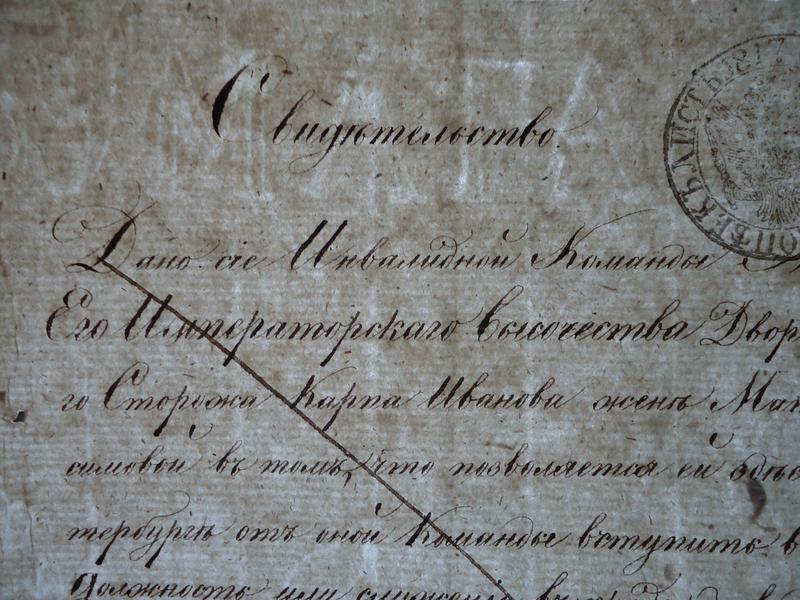 Свидѣтельство.
Дано сіе Инвалидной Команды
Его Императорскаго Высочества Двор
го Сторожа Карпа Иванова женѣ Мак
симовой въ томъ, что позволяется ей здѣс
тербургѣ отъ оной Команды вступить в
должность или служеніе
КОПѢЕКЪ ЛИСТЪ 181